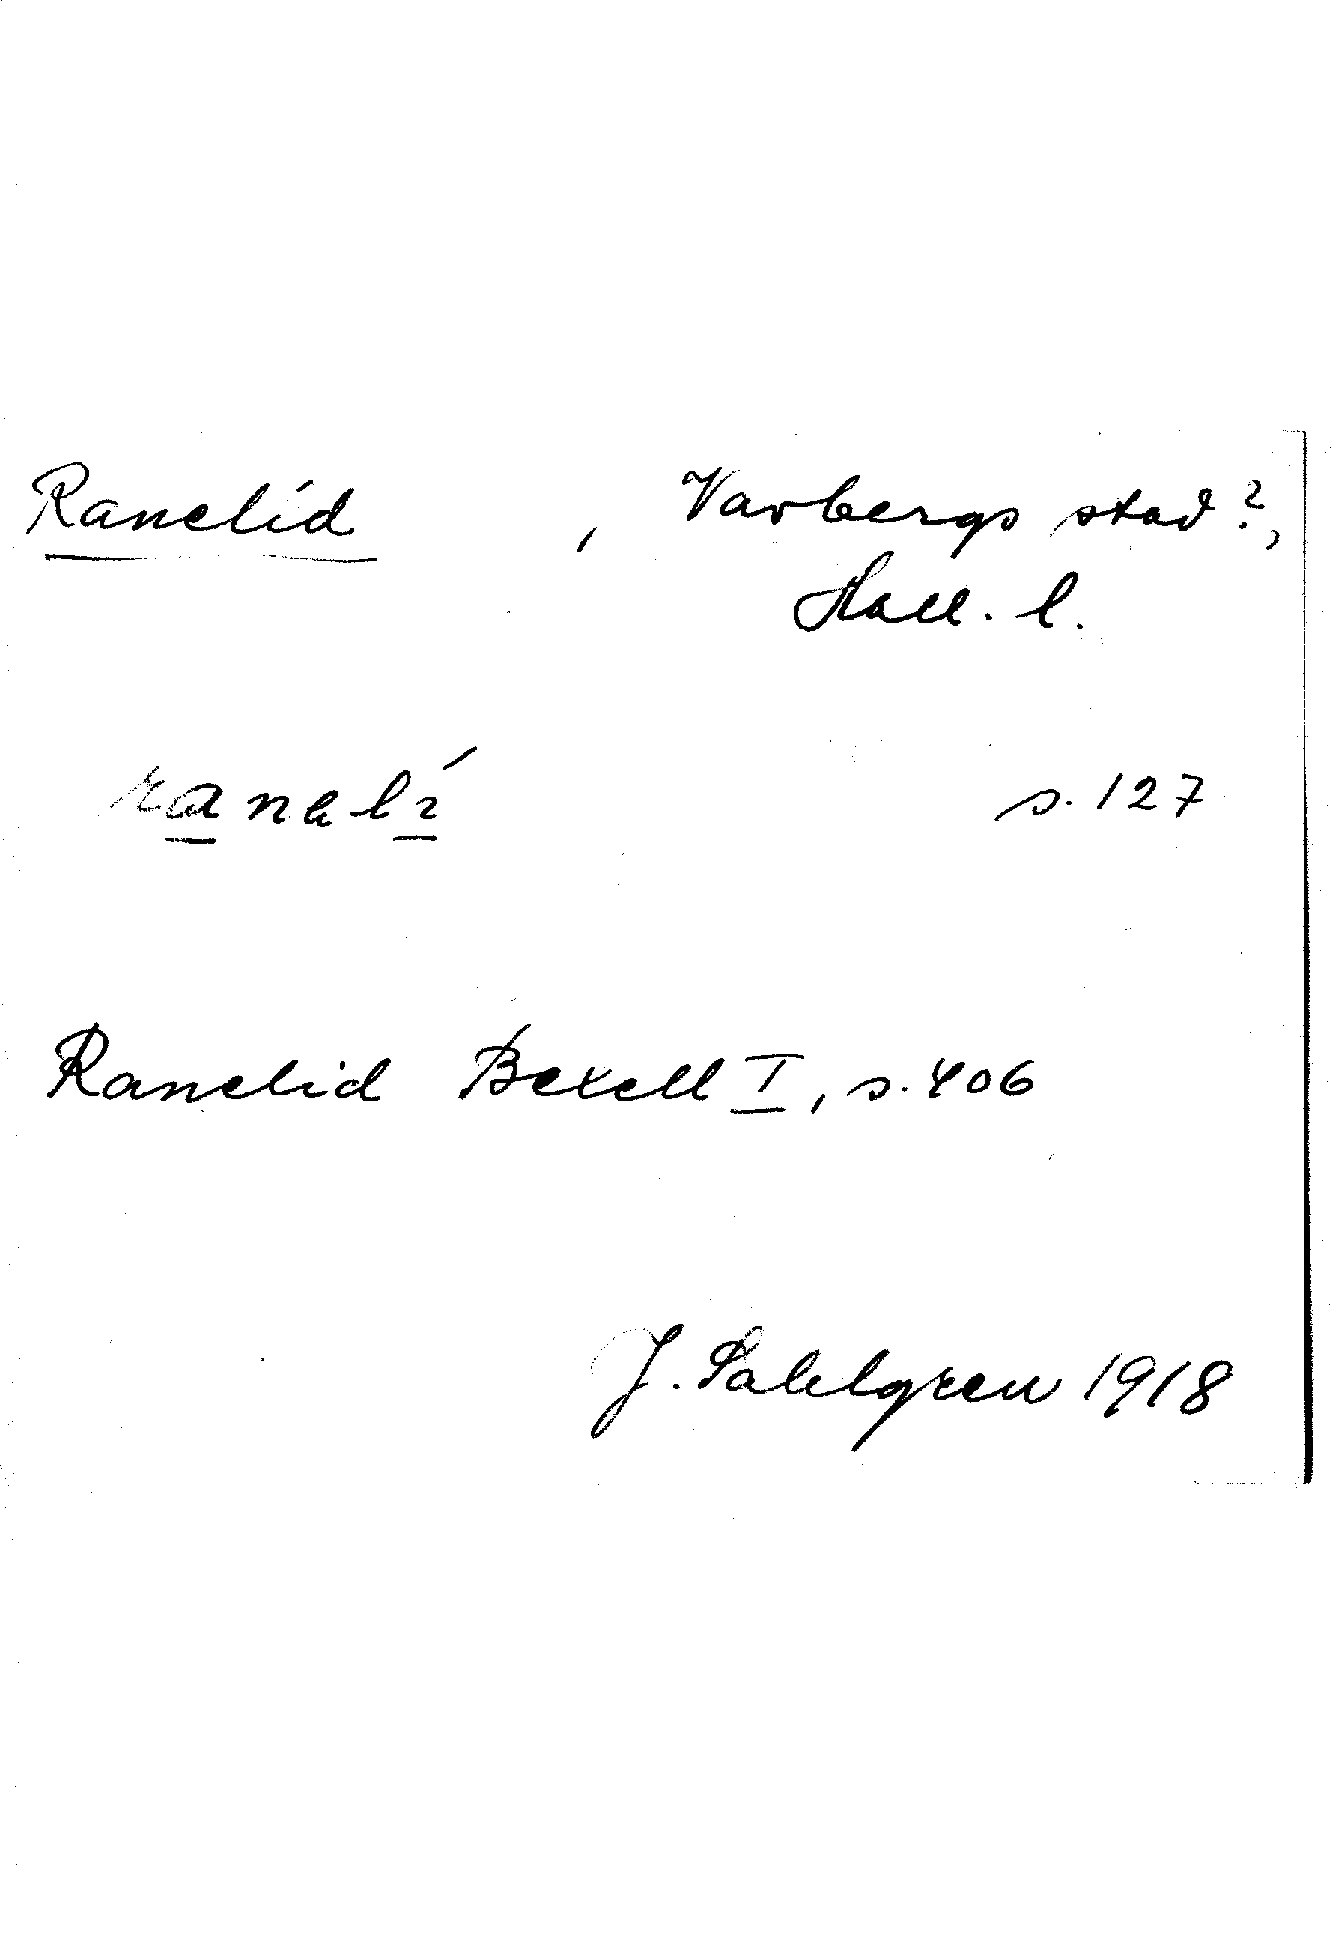 Ranelid , Varbergs stad?,
Hall. l.
ranelí s. 127
Ranelid Bexell I, s. 406
J. Sahlgren 1918